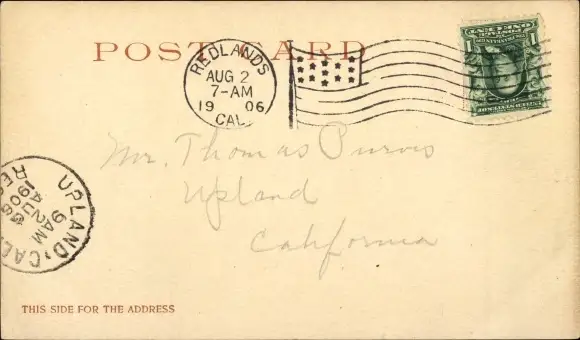 POST CARD
REDLANDS
AUG 2
7-AM
1906
CAL.
1 1
Mr. Thomas Purvis
Upland
California
UPLAND, CAL.
9AM
1906
REC'D
THIS SIDE FOR THE ADDRESS